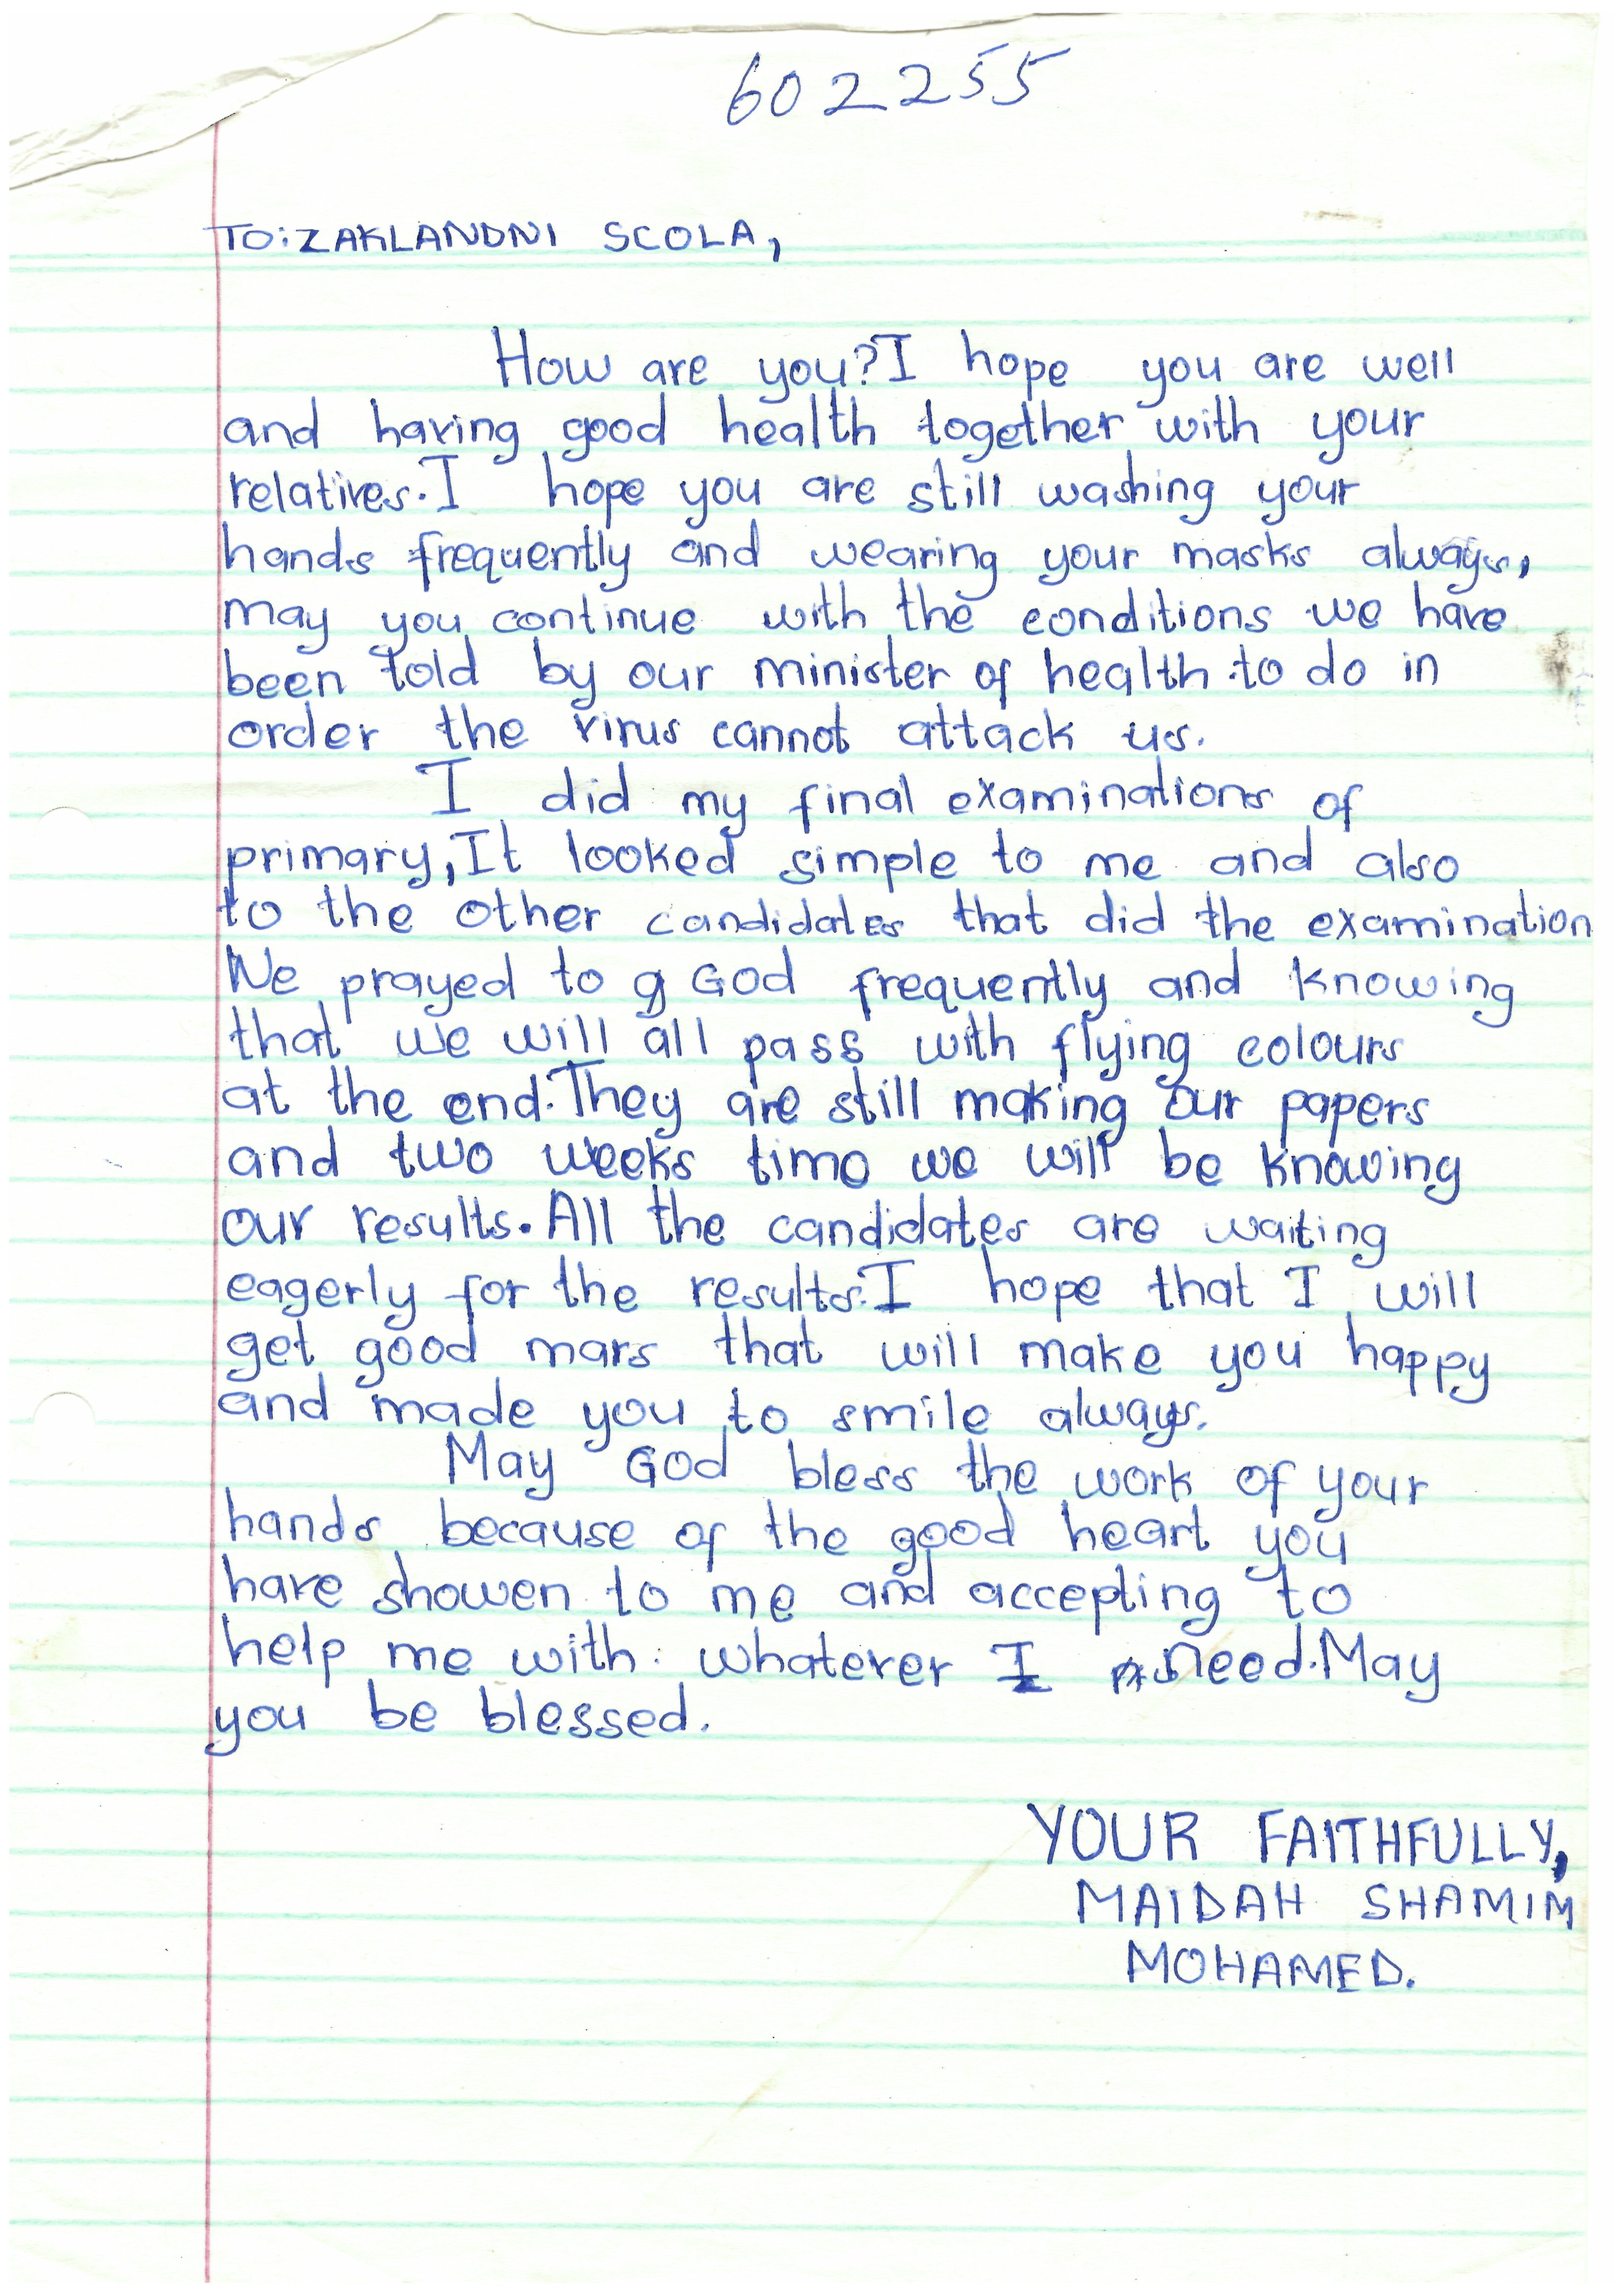 602255
TO: ZAKLANDNI SCOLA,
How are you? I hope you are well
and having good health together with your
relatives. I hope you are still washing your
hands frequently and wearing your masks always,
may you continue with the conditions we have
been told by our minister of health to do in
order the virus cannot attack us.
I did my final examinations of
primary, It looked simple to me and also
to the other candidates that did the examination
We prayed to g God frequently and knowing
that we will all pass with flying colours
at the end. They are still making our papers
and two weeks time we will be knowing
our results. All the candidates are waiting
eagerly for the results. I hope that I will
get good mars that will make you happy
and made you to smile always.
May God bless the work of your
hands because of the good heart you
have showen to me and accepting to
help me with whatever I need. May
you be blessed.
YOUR FAITHFULLY,
MAIDAH SHAMIM
MOHAMED.